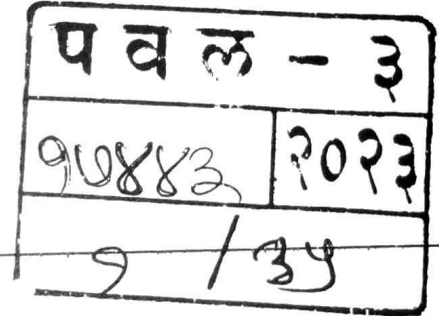 प व ल - ३
१७४४३ २०२३
१ / ३५